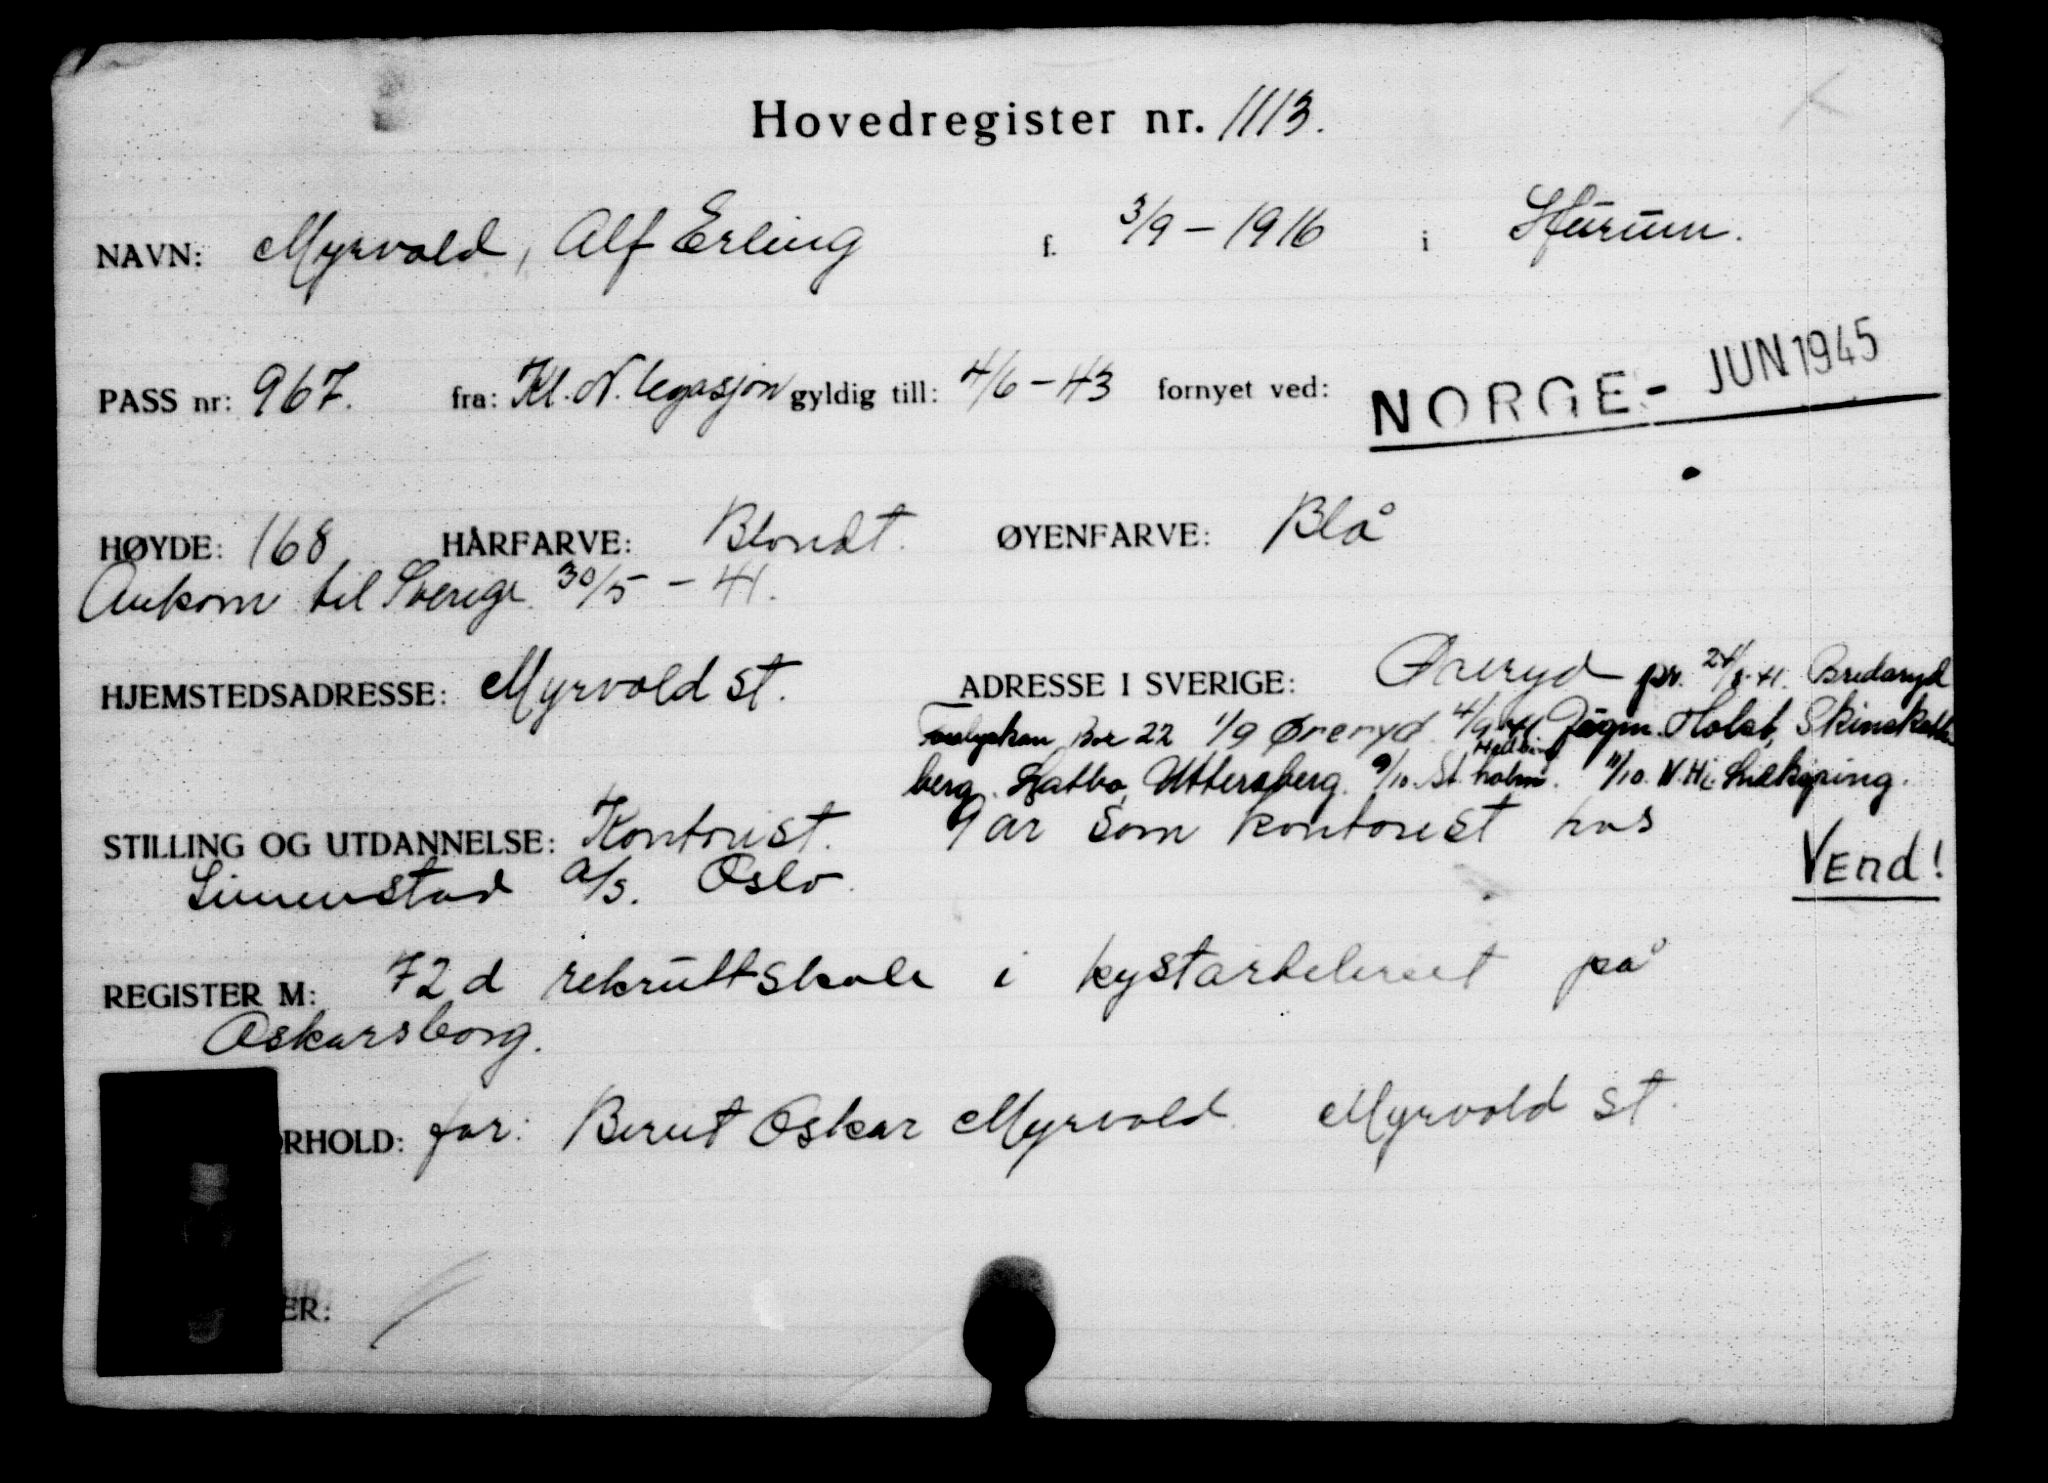 Hovedregister nr. 1113.
NAVN: Myrvold, Alf Erling f. 3/9 - 1916 i Hurum.
PASS nr: 967. fra: Kl. N. legasjon gyldig till: 4/6 - 43 fornyet ved: NORGE - JUN 1945
HØYDE: 168 HÅRFARVE: Blondt. ØYENFARVE: Blå
Ankom til Sverige 30/5 - 41.
HJEMSTEDSADRESSE: Myrvold st. ADRESSE I SVERIGE: Øreryd pr. Bredaryd
Box 22 1/9 Øreryd 4/9 41 Jägm. Holst, Skinskatte
berg. Uttersberg. 9/10. St.holm. 11/10. Lidköping.
STILLING OG UTDANNELSE: Kontorist. 9 år som kontorist hos
Simenstad A/S. Oslo.
Vend!
REGISTER M: 72 d rekruttskole i kystartileriet på
Oskarsborg.
ORHOLD: far: Bernt Oskar Myrvold Myrvold st.
ER: